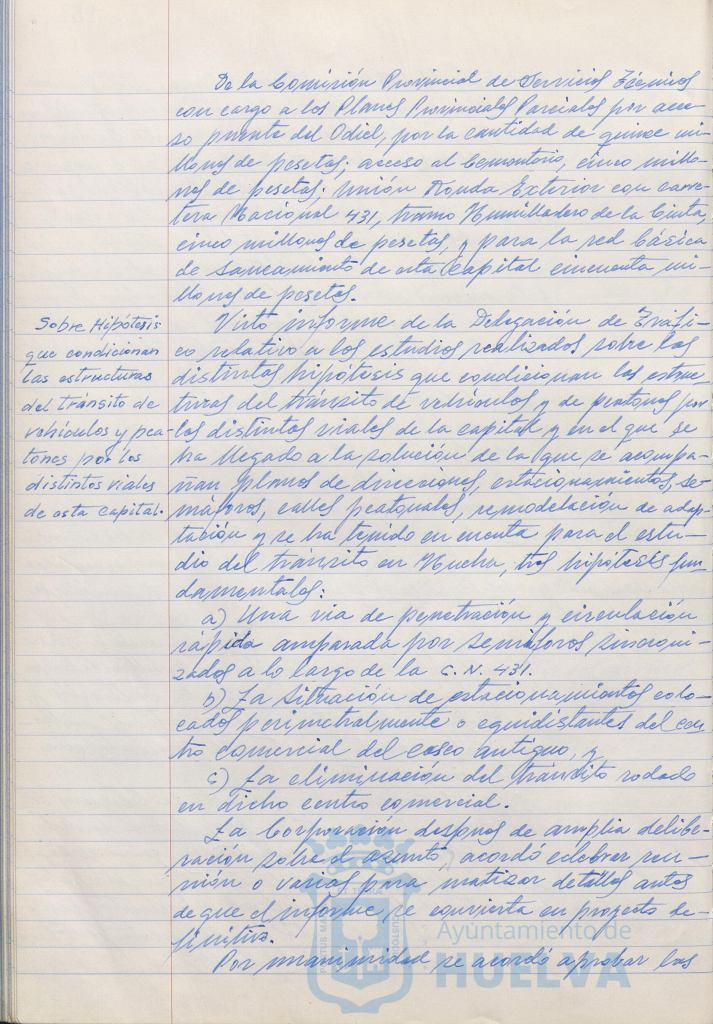 De la Comisión Provincial de Servicios Técnicos
con cargo a los Planes Provinciales Parciales por acce-
so puente del Odiel, por la cantidad de quince mi-
llones de pesetas; acceso al Cementerio, cinco millo-
nes de pesetas; unión Ronda Exterior con carre-
tera Nacional 431, tramo Humilladero de la Cinta,
cinco millones de pesetas, y para la red básica
de saneamiento de esta capital cincuenta mi-
llones de pesetas.
Sobre Hipótesis
que condicionan
las estructuras
del tránsito de
vehículos y pea-
tones por los
distintos viales
de esta capital.
Visto informe de la Delegación de Tráfi-
co relativo a los estudios realizados sobre las
distintas hipótesis que condicionan las estruc-
turas del tránsito de vehículos y de peatones por
los distintos viales de la capital y en el que se
ha llegado a la solución de la que se acompa-
ñan planos de direcciones, estacionamientos, se-
máforos, calles peatonales, remodelación de adap-
tación y se ha tenido en cuenta para el estu-
dio del tránsito en Huelva, tres hipótesis fun-
damentales:
a) Una via de penetración y circulación
rápida amparada por semáforos sincroni-
zados a lo largo de la C.N. 431.
b) La situación de estacionamientos colo-
cados perimetralmente o equidistantes del cen-
tro comercial del casco antiguo, y
c) La eliminación del tránsito rodado
en dicho centro comercial.
La Corporación despues de amplia delibe-
ración sobre el asunto, acordó celebrar reu-
nión o varias para matizar detalles antes
de que el informe se convierta en proyecto de-
finitivo.
Por unanimidad se acordó aprobar las
Ayuntamiento de
HUELVA